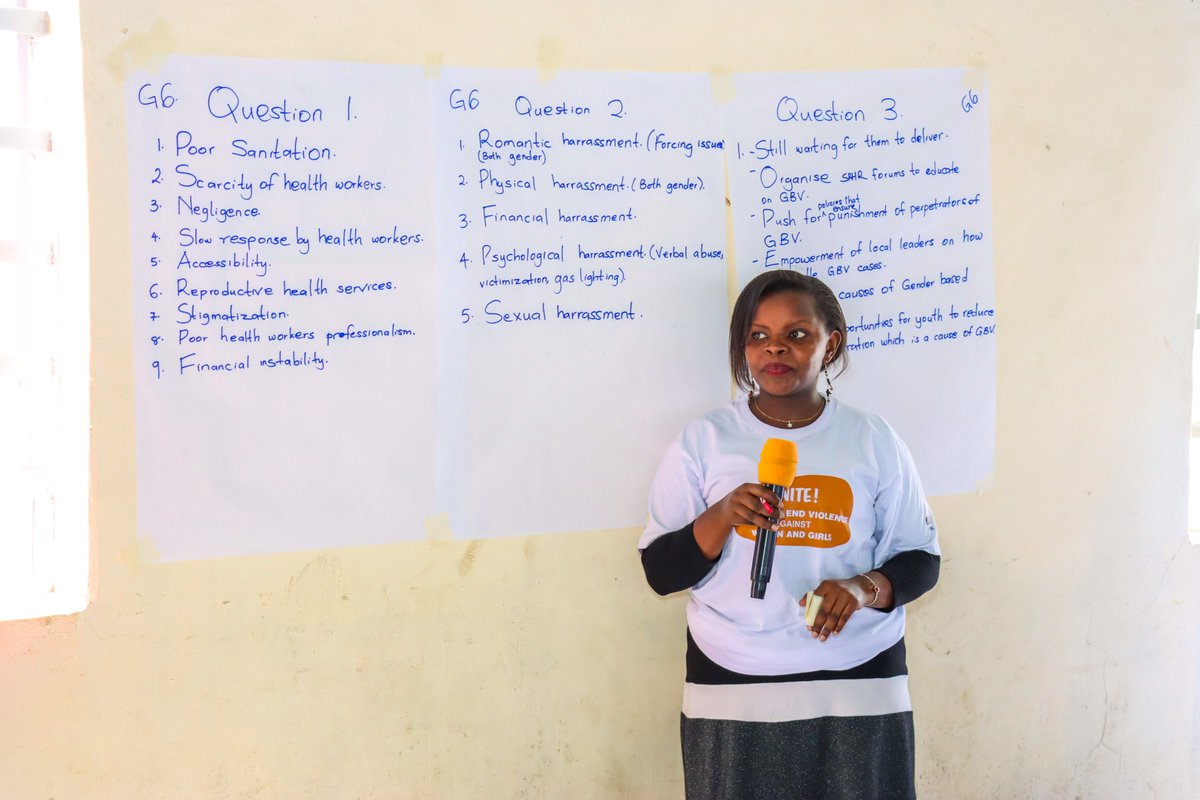 G6. Question 1.
1. Poor Sanitation.
2. Scarcity of health workers.
3. Negligence.
4. Slow response by health workers.
5. Accessibility.
6. Reproductive health services.
7. Stigmatization.
8. Poor health workers professionalism.
9. Financial instability.
G6 Question 2.
1. Romantic harrassment. (Forcing issues
(Both gender)
2. Physical harrassment. (Both gender).
3. Financial harrassment.
4. Psychological harrassment. (Verbal abuse,
victimization, gas lighting).
5. Sexual harrassment.
Question 3. G6
1. - Still waiting for them to deliver.
- Organise forums to educate
on GBV.
policies that
ensure
- Push for ^ punishment of perpetrators of
GBV.
- Empowerment of local leaders on how
GBV cases.
causes of Gender based
for youth to reduce
which is a cause of GBV.
NITE!
END VIOLENCE
AGAINST
AND GIRLS